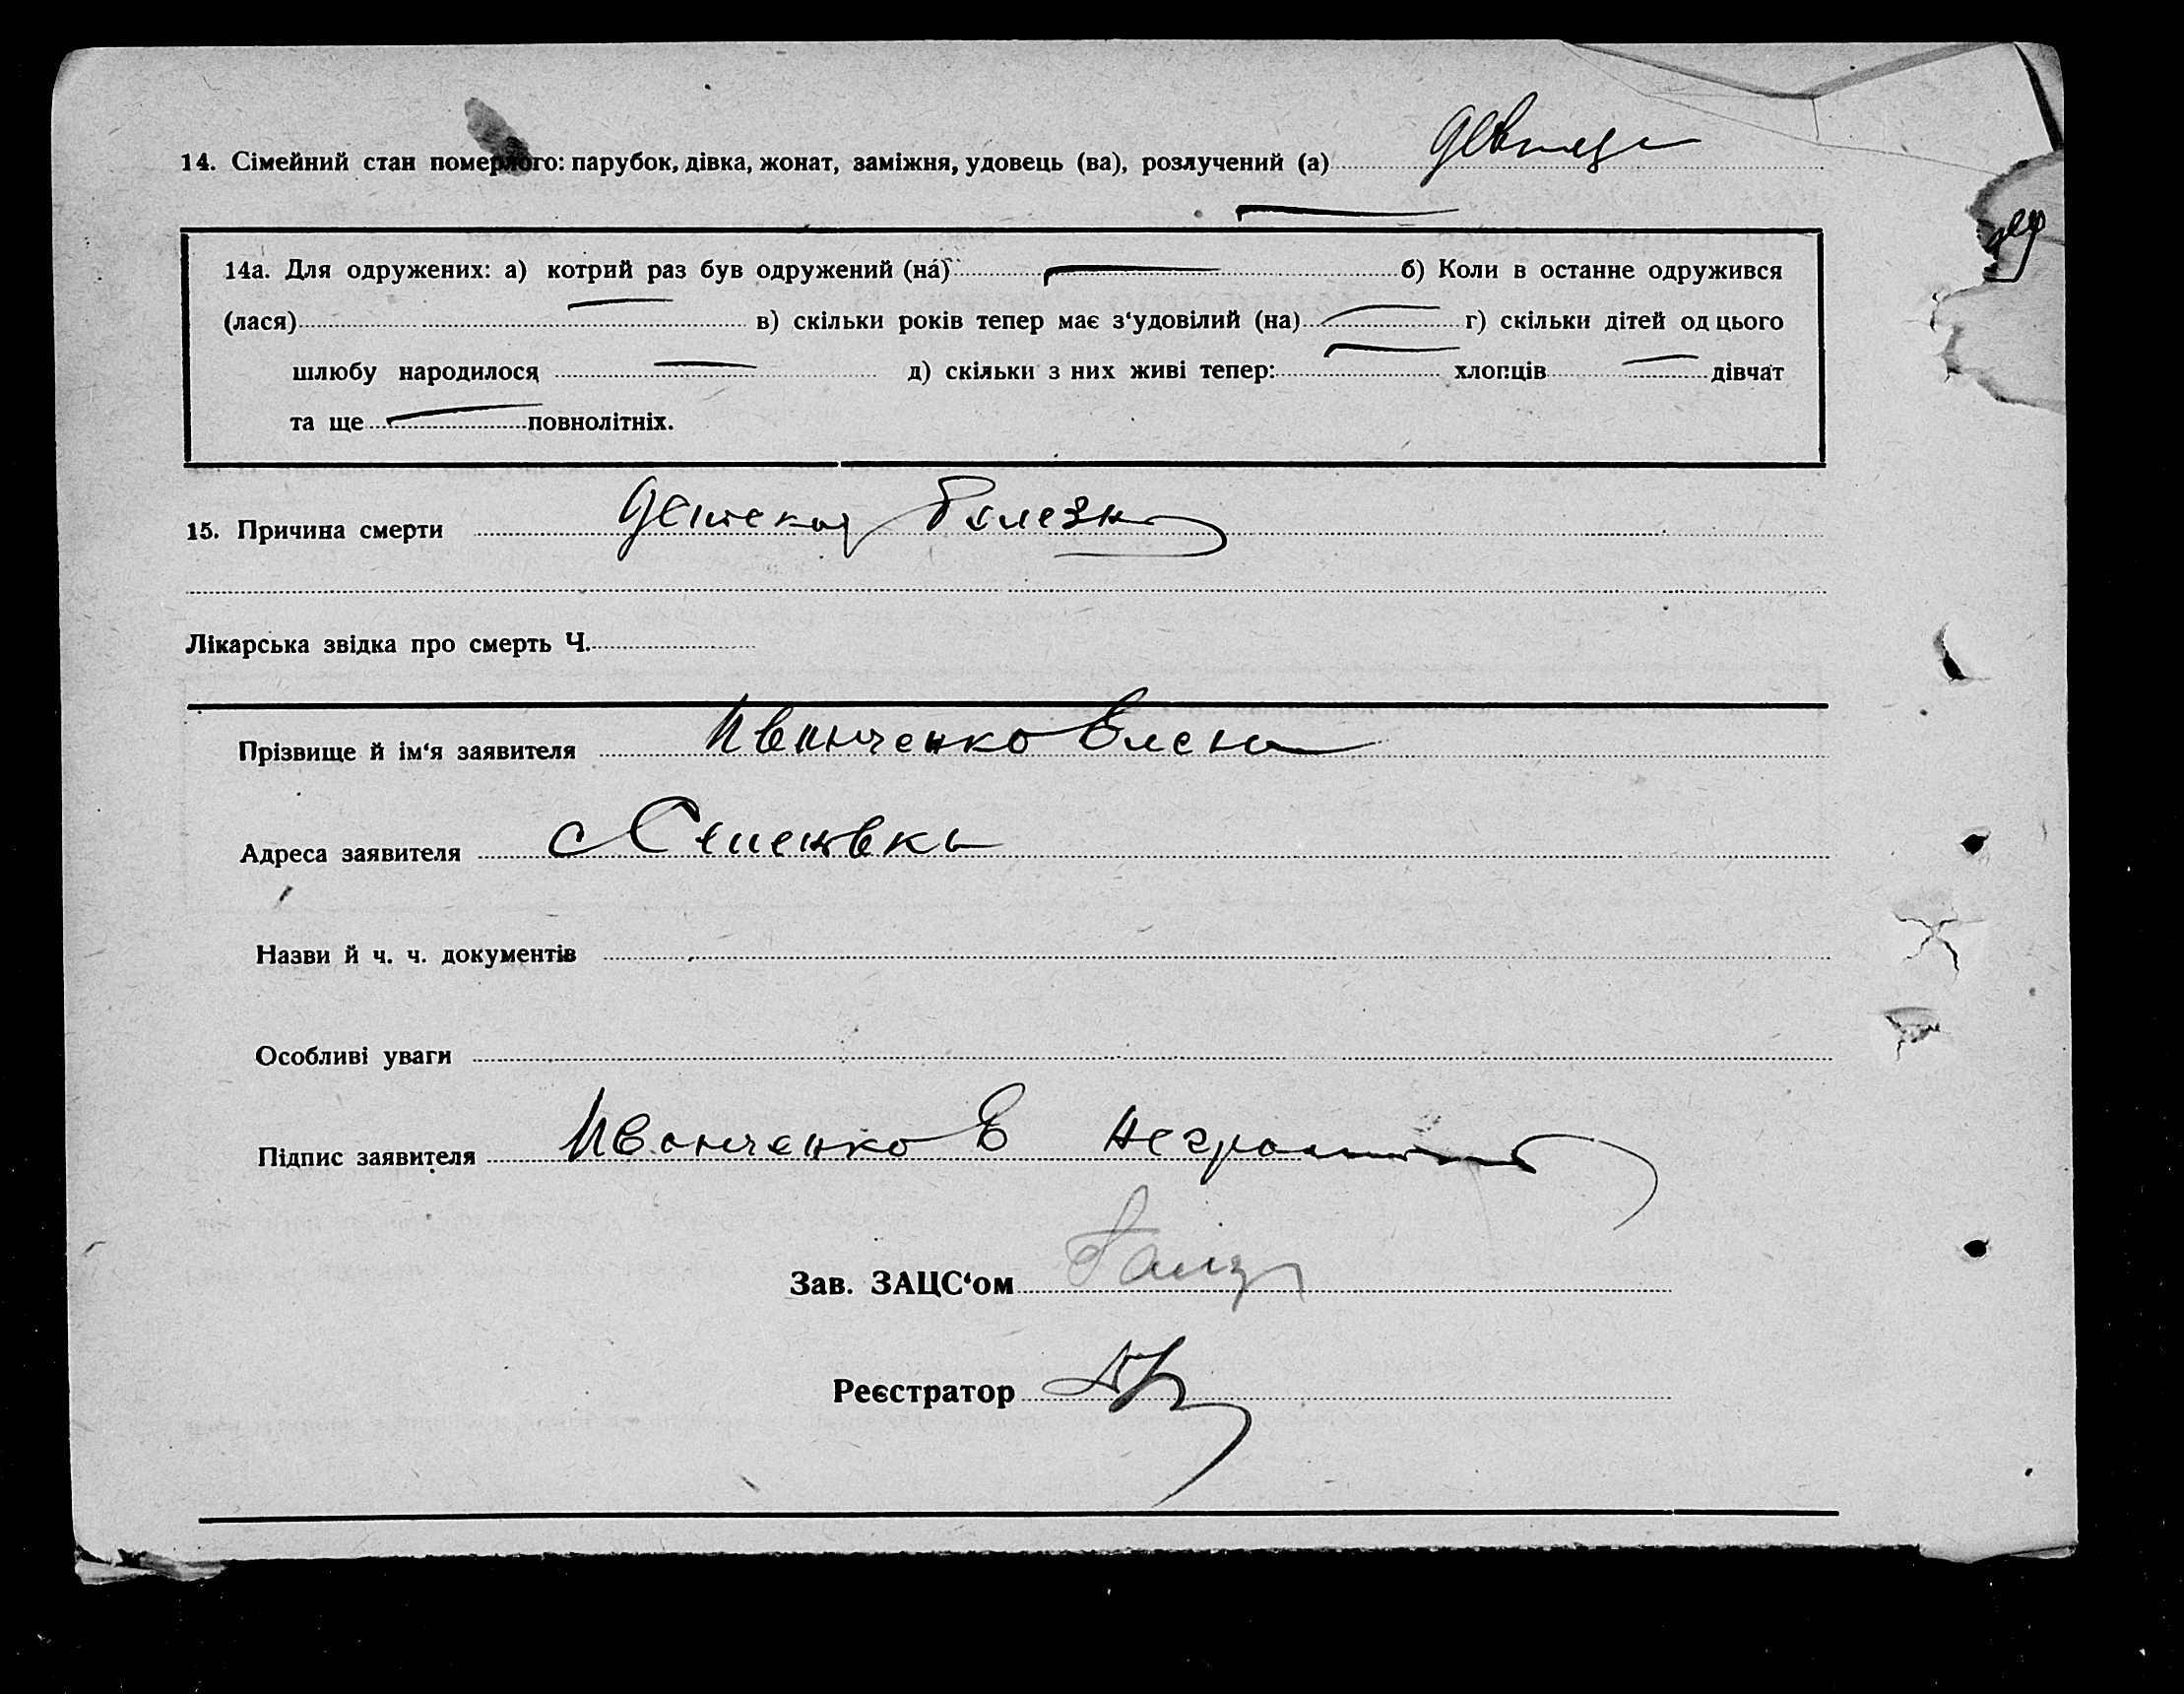 14. Сімейний стан померлого: парубок, дівка, жонат, заміжня, удовець (ва), розлучений (а) девица
14а. Для одружених: а) котрий раз був одружений (на) б) Коли в останнє одружився
(лася) в) скільки років тепер має з‘удовілий (на) г) скільки дітей од цього
шлюбу народилося д) скільки з них живі тепер: хлопців дівчат
та ще повнолітніх.
15. Причина смерти детская болезнь
Лікарська звідка про смерть Ч.
Прізвище й ім‘я заявителя Иванченко Елена
Адреса заявителя с Семеновка
Назви й ч. ч. документів
Особливі уваги
Підпис заявителя Иванченко Е неграмотна
Зав. ЗАЦС‘ом
Реєстратор